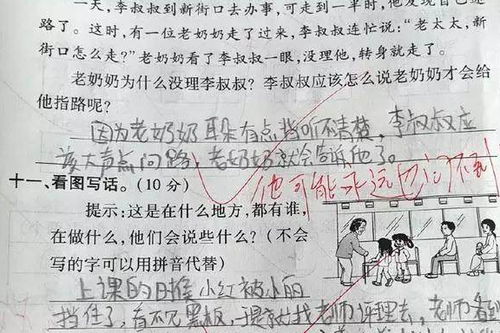 一天，李叔叔到新街口去办事，可走到一半时，他发现自己迷
路了。这时，有一位老奶奶走了过来，李叔叔连忙说：“老太太，新
街口怎么走？”老奶奶看了李叔叔一眼，没理他，转身就走了。
老奶奶为什么没理李叔叔？李叔叔应该怎么说老奶奶才会给
他指路呢？
因为老奶奶耳朵有点背听不清楚，李叔叔应
该大声点问路，老奶奶就会告诉他了。
他可能永远也问不到
十一、看图写话。（10 分）
提示：这是在什么地方，都有谁，
在做什么，他们会说些什么？（不会
写的字可以用拼音代替）
上课的时候小红被小丽
挡住了，看不见黑板，于是就找老师评理去，老师看